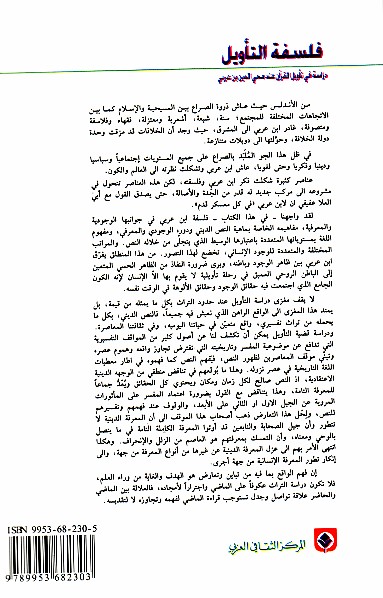 فلسفة التأويل
دراسة في تأويل القرآن عند محيي الدين بن عربي
من الأندلس حيث عاش ذروة الصراع بين المسيحية والإسلام كما بين
الاتجاهات المختلفة للمجتمع؛ سنة، شيعة، أشعرية ومعتزلة، فقهاء وفلاسفة
ومتصوفة، غادر ابن عربي الى المشرق، حيث وجد أن الخلافات قد مزقت وحدة
دولة الخلافة، وحوّلتها الى دويلات متنازعة.
في ظل هذا الجو المُلبّد بالصراع على جميع المستويات إجتماعياً وسياسياً
ودينياً وفكرياً وحتى لغوياً، عاش ابن عربي وتشكلت نظرته الى العالم والكون.
عناصر كثيرة شكلت فكر ابن عربي وفلسفته، لكن هذه العناصر تتحول في
مشروعه الى مركب جديد له قدر من الجدّة والأصالة، حتى يصدق القول مع أبي
العلا عفيفي ان لابن عربي «في كل معسكر قدم».
لقد واجهنا ـ في هذا الكتاب ـ فلسفة ابن عربي في جوانبها الوجودية
والمعرفية، مفاهيمه الخاصة بماهية النص الديني ودوره الوجودي والمعرفي، ومفهوم
اللغة بمستوياتها المتعددة باعتبارها الوسيط الذي يتجلّى من خلاله النص. والمراتب
المختلفة والمتعددة للوجود الإنساني، تخضع لهذا التصور. من هذا المنطلق يفرّق
ابن عربي بين ظاهر الوجود وباطنه، ويرى ضرورة النفاذ من الظاهر الحسي المتعين
إلى الباطن الروحي العميق في رحلة تأويلية لا يقوم بها الاّ الإنسان لإنه الكون
الجامع الذي اجتمعت فيه حقائق الوجود وحقائق الألوهة في الوقت نفسه.
لا يقف مغزى دراسة التأويل عند حدود التراث بكل ما يمثله من قيمة، بل
يمتد هذا المغزى الى الواقع الراهن الذي نعيش فيه جميعاً، فالنص الديني، بكل ما
يحمله من تراث تفسيري، واقع متعيّن في حياتنا اليومية، وفي ثقافتنا المعاصرة.
ودراسة قضية التأويل يمكن أن تكشف لنا عن أصول كثير من المواقف التفسيرية
التي تدافع عن موضوعية المفسر وتاريخيته التي تفترض تجاوز واقعه وهموم عصره،
وتبنّي موقف المعاصرين لظهور النص، فيُفهم النص كما فهموه، في إطار معطيات
اللغة التاريخية في عصر نزوله. وهذا ما يوقعهم في تناقض منطقي من الوجهة الدينية
الاعتقادية، اذ النص صالح لكل زمان ومكان ويحتوي كل الحقائق ويُعدُّ جماعاً
للمعرفة التامة، وهذا يتناقض مع القول بضرورة اعتماد المفسر على المأثورات
المروية عن الجيل الأول أو الثاني على الأبعد، والوقوف عند فهمهم وتفسيرهم
للنص، ولحل هذا التعارض ذهب أصحاب هذا الموقف الى أن المعرفة الدينية لا
تتطور وأن جيل الصحابة والتابعين قد أوتوا المعرفة الكاملة التامة في ما يتصل
بالوحي ومعناه، وأن التمسك بمعرفتهم هو العاصم من الزلل والإنحراف. وهكذا
انتهى الأمر بهم الى عزل المعرفة الدينية عن غيرها من أنواع المعرفة من جهة، والى
إنكار تطور المعرفة الإنسانية من جهة أخرى.
إن فهم الواقع بما فيه من تباين وتعارض هو الهدف والغاية من وراء العلم،
فلا تكون دراسة التراث عكوفاً على الماضي واجتراراً لأمجاده، فالعلاقة بين الماضي
والحاضر علاقة تواصل وجدل تستوجب قراءة الماضي لفهمه وتجاوزه لا لتقديسه.
المركز الثقافي العربي
ISBN 9953-68-230-5
9 789953 682303